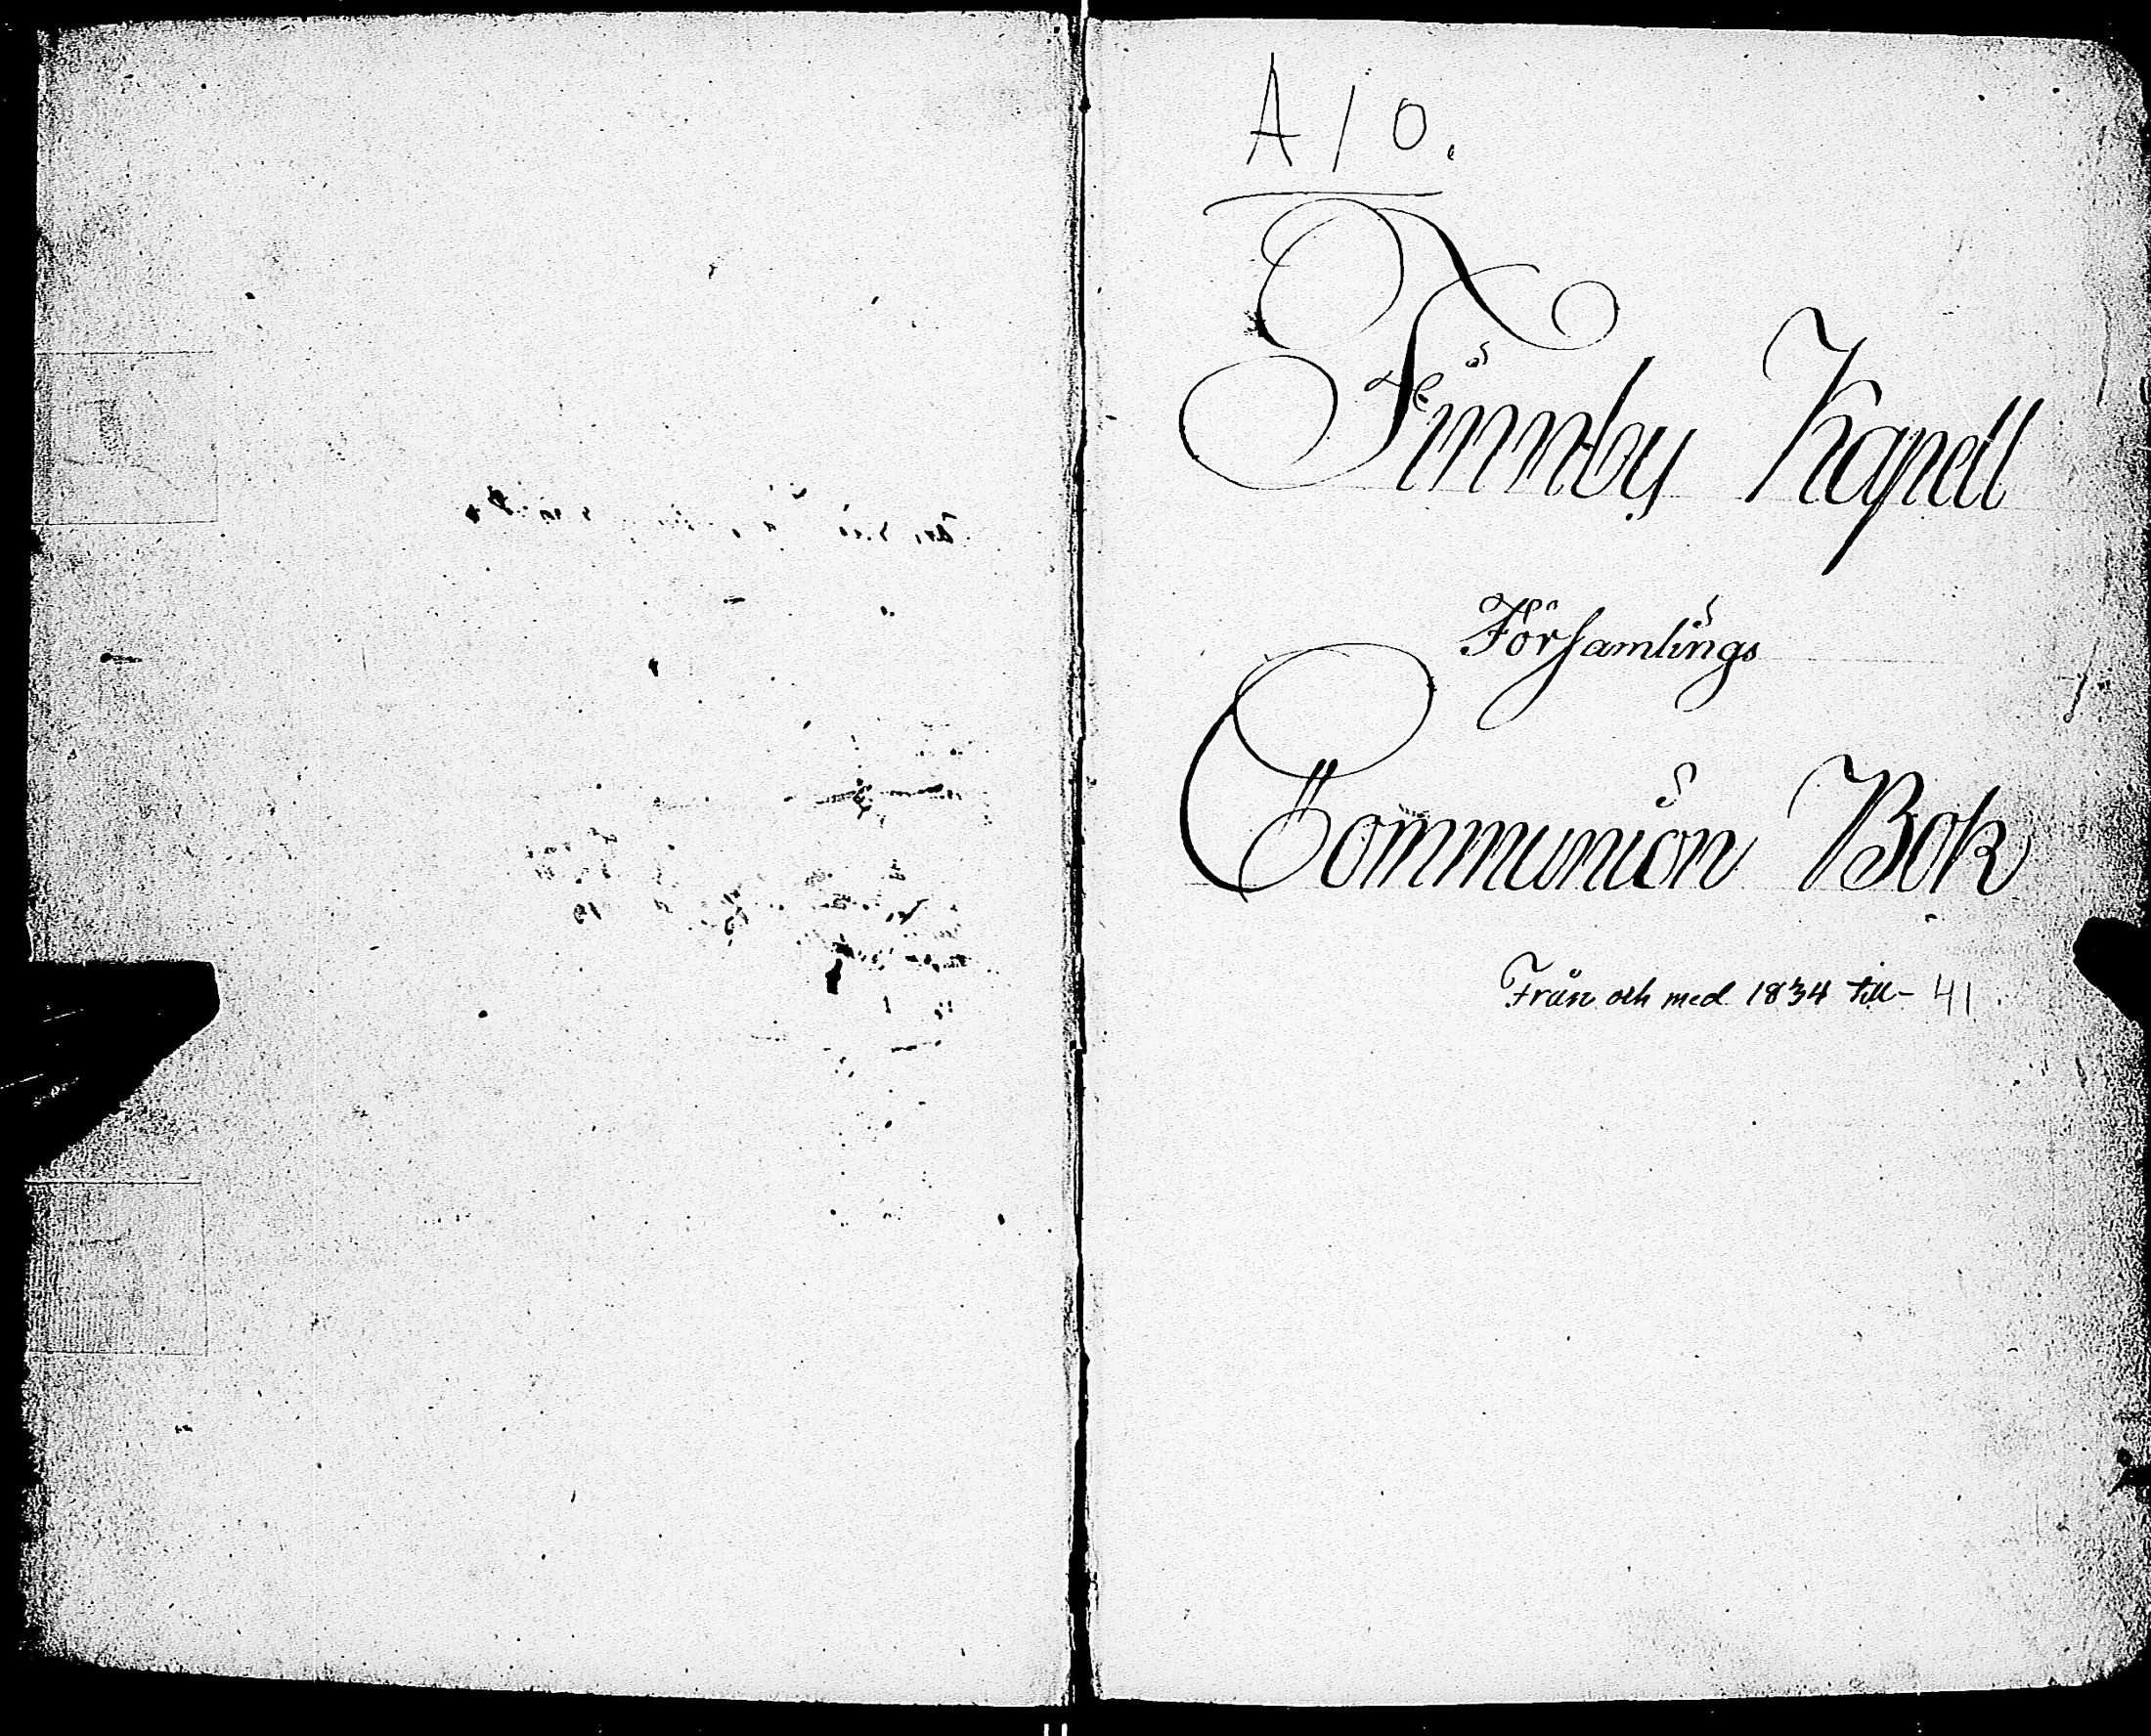 A 10.
Finnby Kapell
Församlings
Communion Bok
Från och med 1834 till - 41